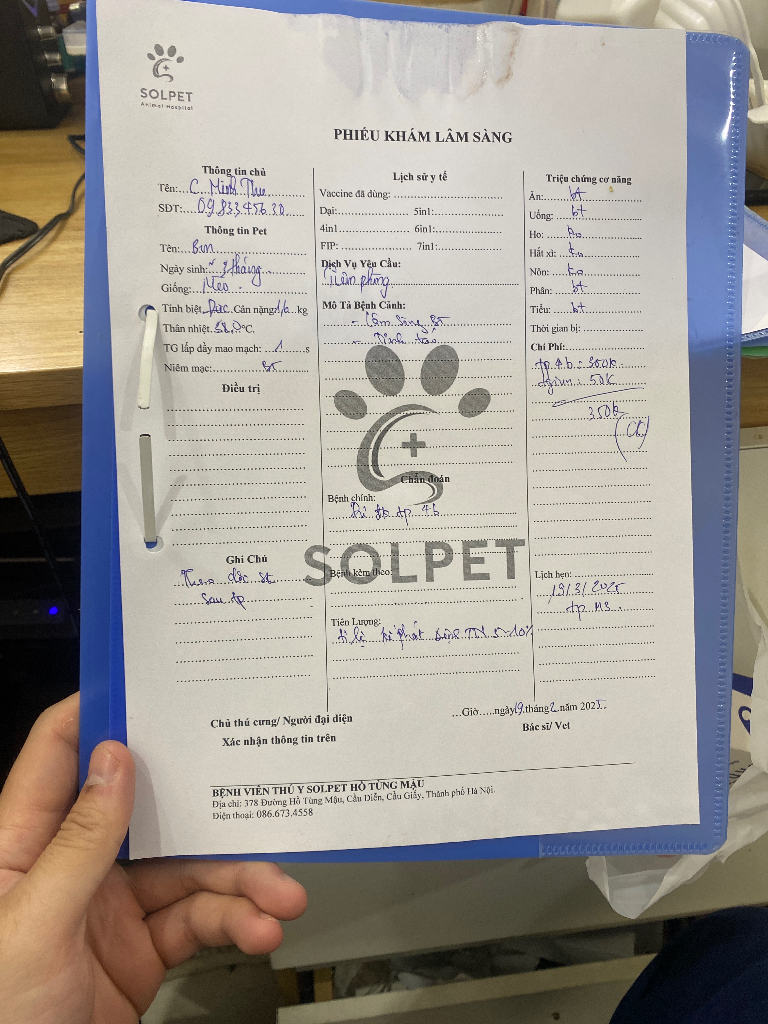 SOLPET
Animal Hospital
PHIẾU KHÁM LÂM SÀNG
Thông tin chủ
Tên: C Minh Thu
SĐT: 0983345638
Thông tin Pet
Tên: Bun
Ngày sinh: ~ 3 tháng
Giống: Mèo
Tính biệt Đực Cân nặng 1,6 kg
Thân nhiệt 38, °C.
TG lấp đầy mao mạch: 1 s
Niêm mạc: BT
Điều trị
Ghi Chú
Theo dõi st
sau tp
Lịch sử y tế
Vaccine đã dùng:
Dại: 5in1:
4in1 6in1:
FIP: 7in1:
Dịch Vụ Yêu Cầu:
Tiêm phòng
Mô Tả Bệnh Cảnh:
- Lâm sàng BT
- Tỉnh táo
Chẩn đoán
Bệnh chính:
tp 4b
SOLPET
Bệnh kèm theo:
Tiên Lượng:
Tỉ lệ phát bệnh TN 5-10%
Triệu chứng cơ năng
Ăn: bt
Uống: bt
Ho: ko
Hắt xì: ko
Nôn: ko
Phân: bt
Tiểu: bt
Thời gian bị:
Chi Phí:
tp 4b: 300k
: 50k
350k
(CK)
Lịch hẹn:
19/3/2025
tp M3.
Chủ thú cưng/ Người đại diện
Xác nhận thông tin trên
...Giờ.....ngày 19 tháng 2 năm 2025
Bác sĩ/ Vet
BỆNH VIỆN THÚ Y SOLPET HỒ TÙNG MẬU
Địa chỉ: 378 Đường Hồ Tùng Mậu, Cầu Diễn, Cầu Giấy, Thành phố Hà Nội.
Điện thoại: 086.673.4558